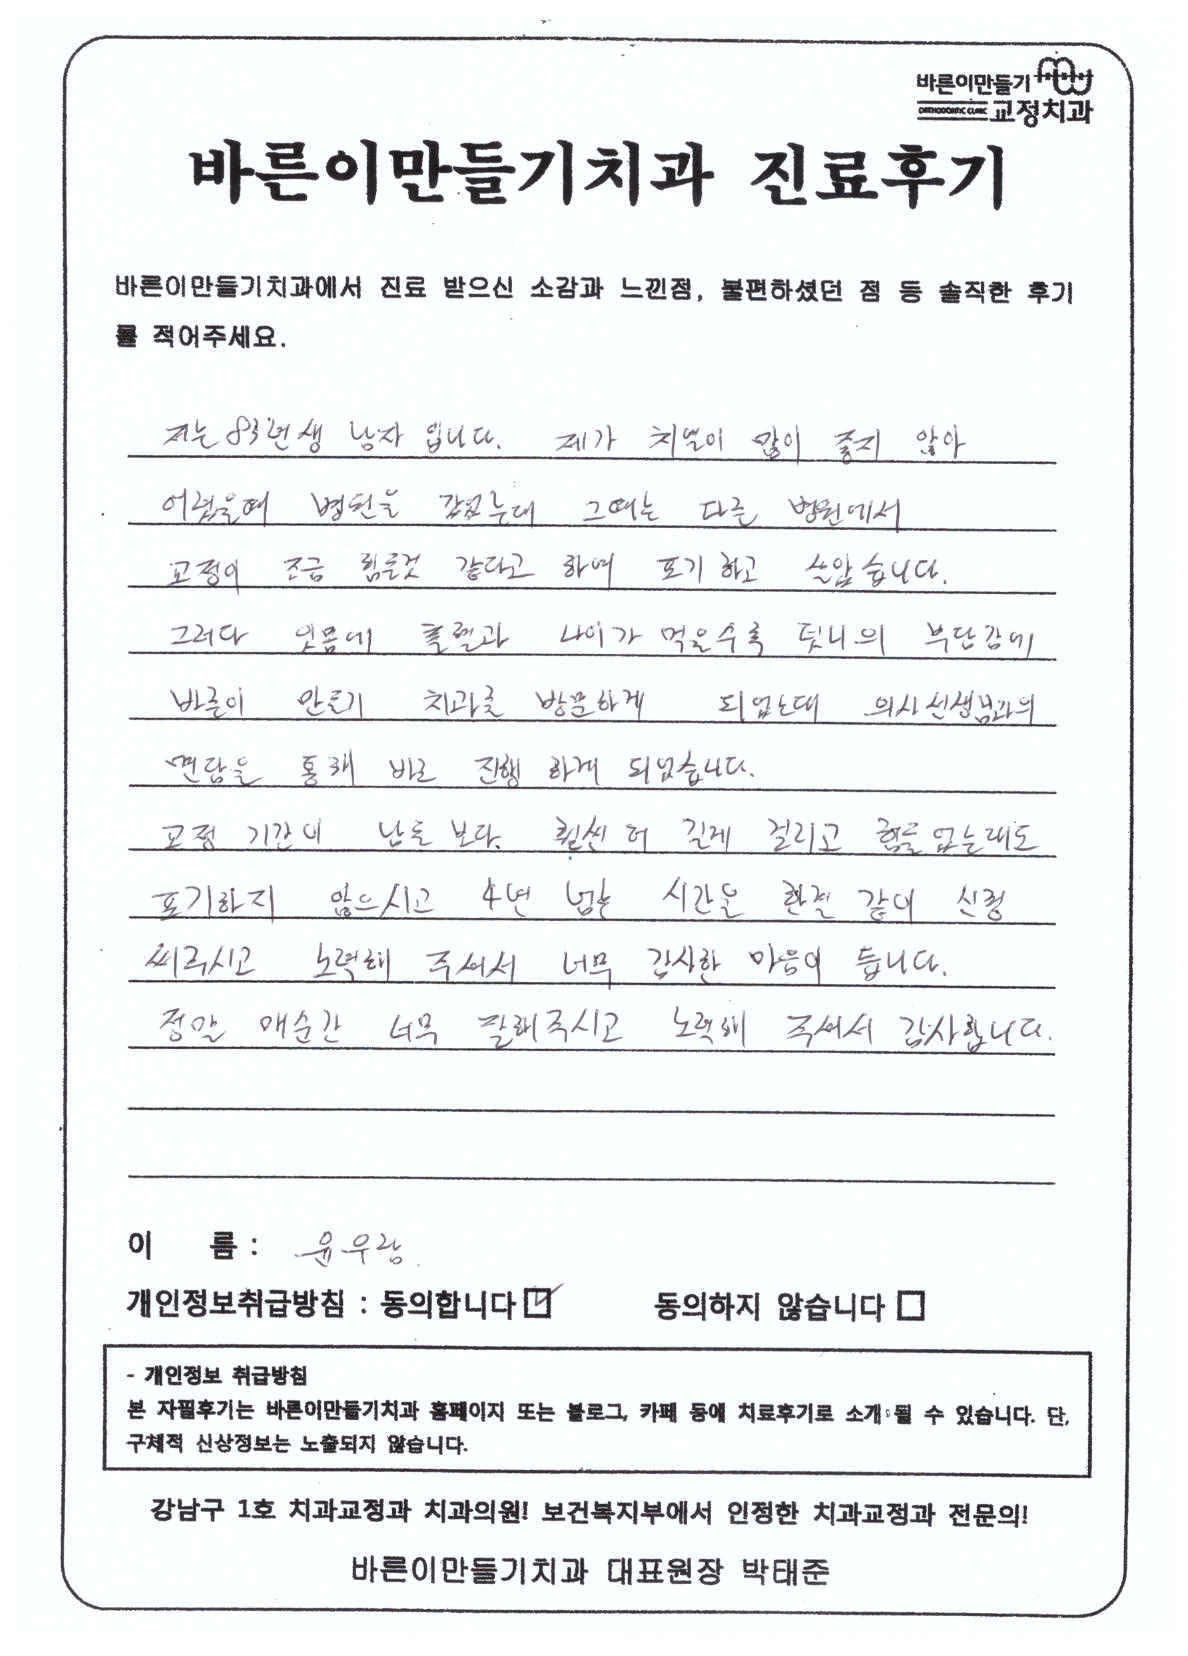 바른이만들기
ORTHODONTIC CLINIC 교정치과
바른이만들기치과 진료후기
바른이만들기치과에서 진료 받으신 소감과 느낀점, 불편하셨던 점 등 솔직한 후기
를 적어주세요.
저는 83년생 남자 입니다. 제가 치열이 많이 좋지 않아
어렸을때 병원을 갔었는데 그때는 다른 병원에서
교정이 조금 힘들것 같다고 하여 포기 하고 살았습니다.
그러다 잇몸에 출혈과 나이가 먹을수록 덧니의 부담감에
바른이 만들기 치과를 방문하게 되었는대 의사선생님과의
면담을 통해 바로 진행 하게 되었습니다.
교정 기간이 남들 보다. 훨씬 더 길게 걸리고 힘들었는대도
포기하지 않으시고 4년 넘는 시간을 한결 같이 신경
써주시고 노력해 주셔서 너무 감사한 마음이 듭니다.
정말 매순간 너무 잘해주시고 노력해 주셔서 감사합니다.
이 름 : 윤우람
개인정보취급방침 : 동의합니다 ☑ 동의하지 않습니다 □
- 개인정보 취급방침
본 자필후기는 바른이만들기치과 홈페이지 또는 블로그, 카페 등에 치료후기로 소개 될 수 있습니다. 단,
구체적 신상정보는 노출되지 않습니다.
강남구 1호 치과교정과 치과의원! 보건복지부에서 인정한 치과교정과 전문의!
바른이만들기치과 대표원장 박태준